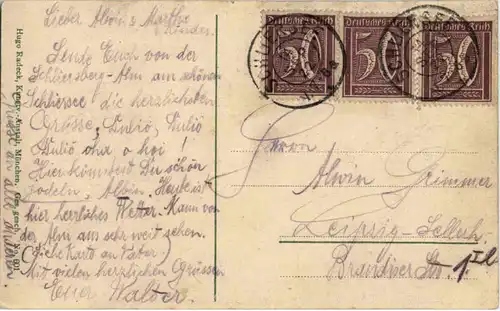 Lieber Alwin & Martha
& Kinder.
Sende Euch von der
Schliersberg-Alm am schönen
Schliersee die herzlichsten
Grüsse, Duliö, Dulio
Duliö ohu o hoi!
Hier könntest Du schön
jodeln, Alwin. Heute ist
hier herrliches Wetter. Kann von
der Alm aus sehr weit sehen.
(Siehe Karte an Vater)
Mit vielen herzlichen Grüssen
Euer Walter.
Grüsse an alle
Hugo Radeck, Kunst-Anstalt, München, Ges. gesch. No. 601
Deutsches Reich
50
Deutsches Reich
50
Deutsches Reich
50
Herrn
Alwin Grimmer
Leipzig-Selleh.
Brandiser Str. 1.II